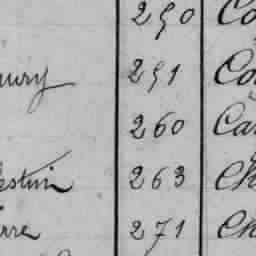 250 Co
ury 251 Co
260 Ca
estin 263 Ch
rre 271 Ch